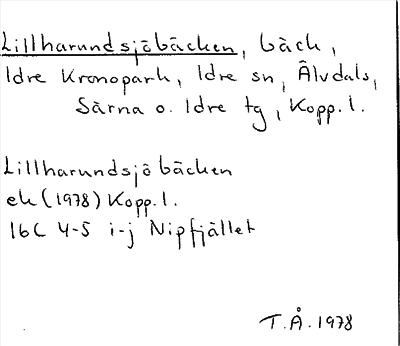 Lillharundsjöbäcken, bäck,
Idre Kronopark, Idre sn, Älvdals,
Särna o. Idre tg, Kopp. l.
Lillharundsjöbäcken
ek (1978) Kopp. l.
16C 4-5 i-j Nipfjället
T.Å. 1978